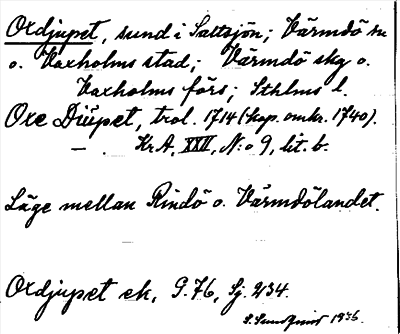 Oxdjupet, sund i Saltsjön; Värmdö sn
o. Vaxholms stad; Värmdö skg o.
Vaxholms förs; Sthlms l.
Oxe Diüpet, trol. 1714 (kop. omkr. 1740).
— . Kr A, XXII, N:o 9, lit. b.
Läge mellan Rindö o. Värmdölandet.
Oxdjupet ek, G. 76, Sj. 234.
S. Sundqvist 1936.